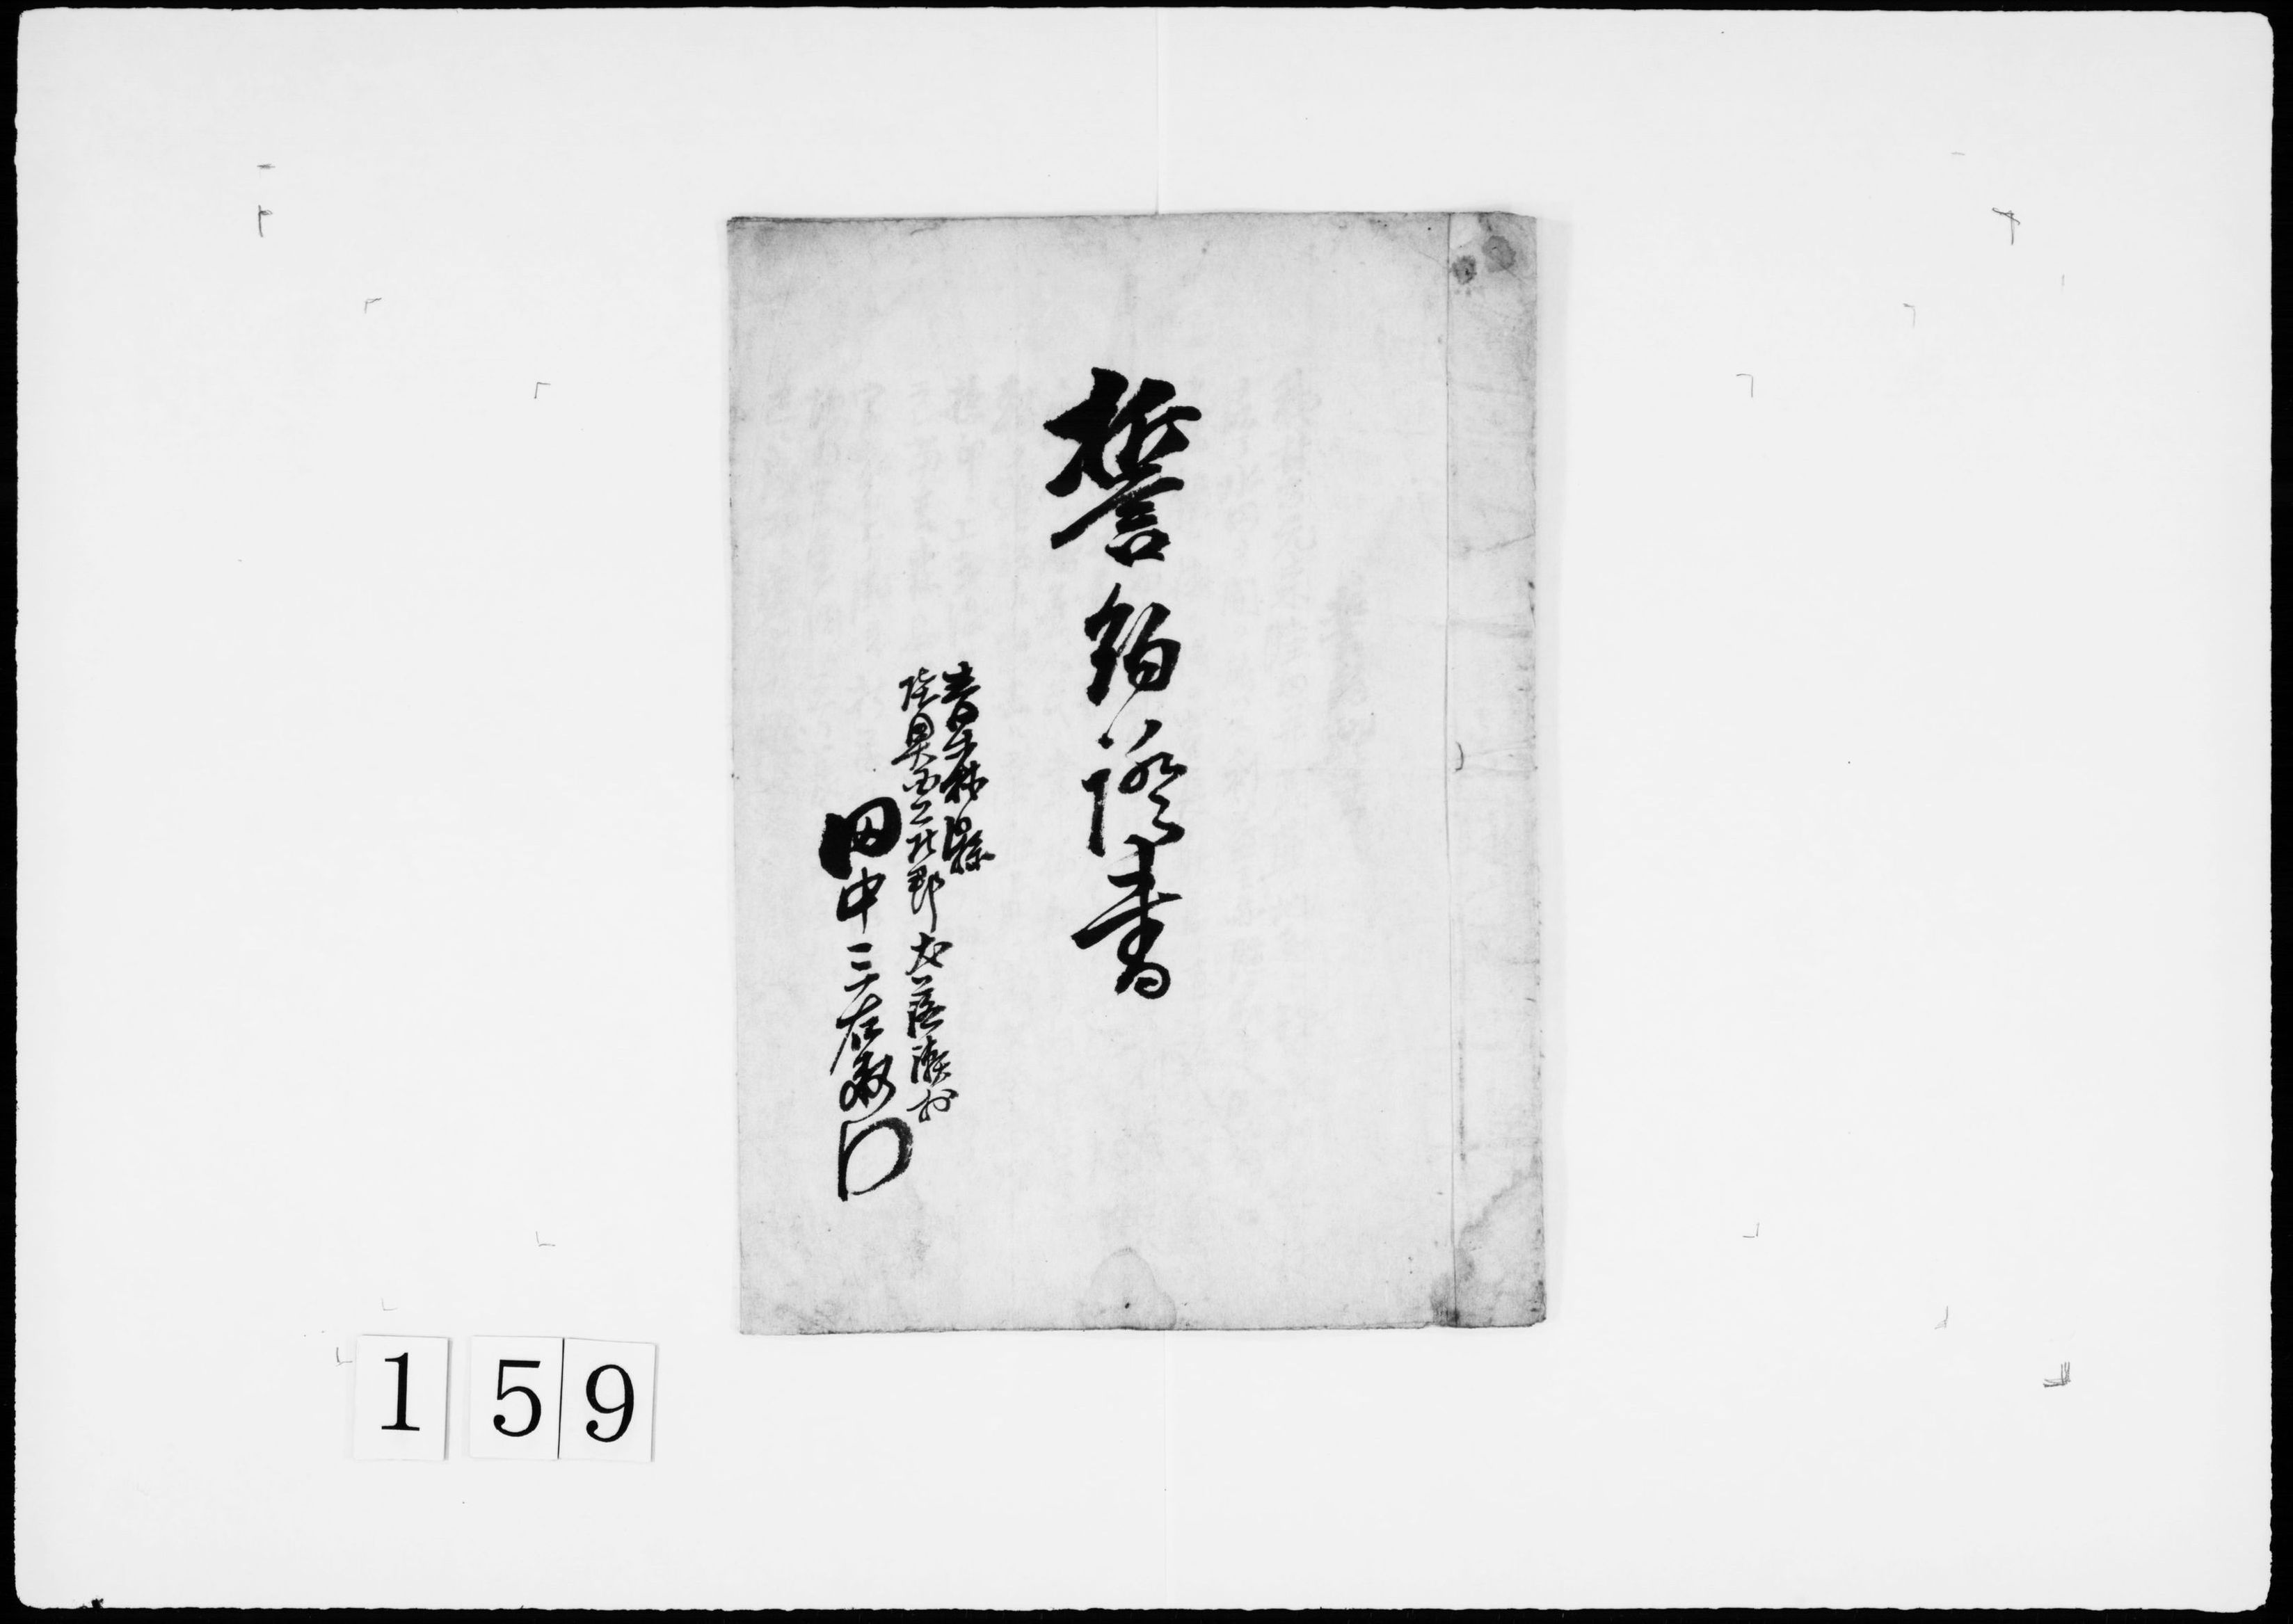 誓約證書
青森縣
陸奥国上北郡大落瀬村
田中三右衛門
159